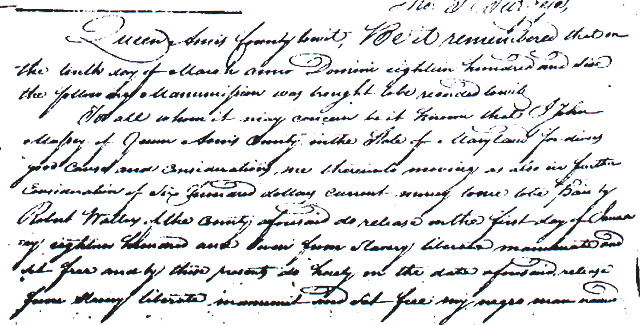 Queen Anns County towit, Be it remembered that on
the tenth day of March anno Domini eighteen hundred and
the following Manumission was brought to be recorded towit
To all whom it may concern be it known that I John
Massey of Queen Anns County in the State of Maryland for divers
good causes and considerations me thereunto moving as also in further
Consideration of Six Hundred dollars current money to me to be Paid by
Robert Walley of the County aforesaid do release on the first day of Janua
ry eighteen hundred and from Slavery liberate manumit and
set free and by these presents do hereby on the date aforesaid release
from Slavery liberate manumit and set free my negro man name